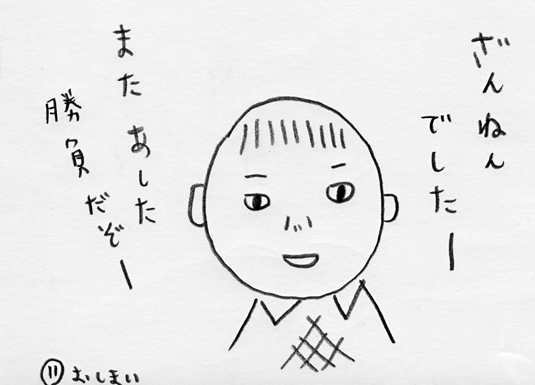 ざんねん
でしたー
また あした
勝負だぞー
⑪ おしまい